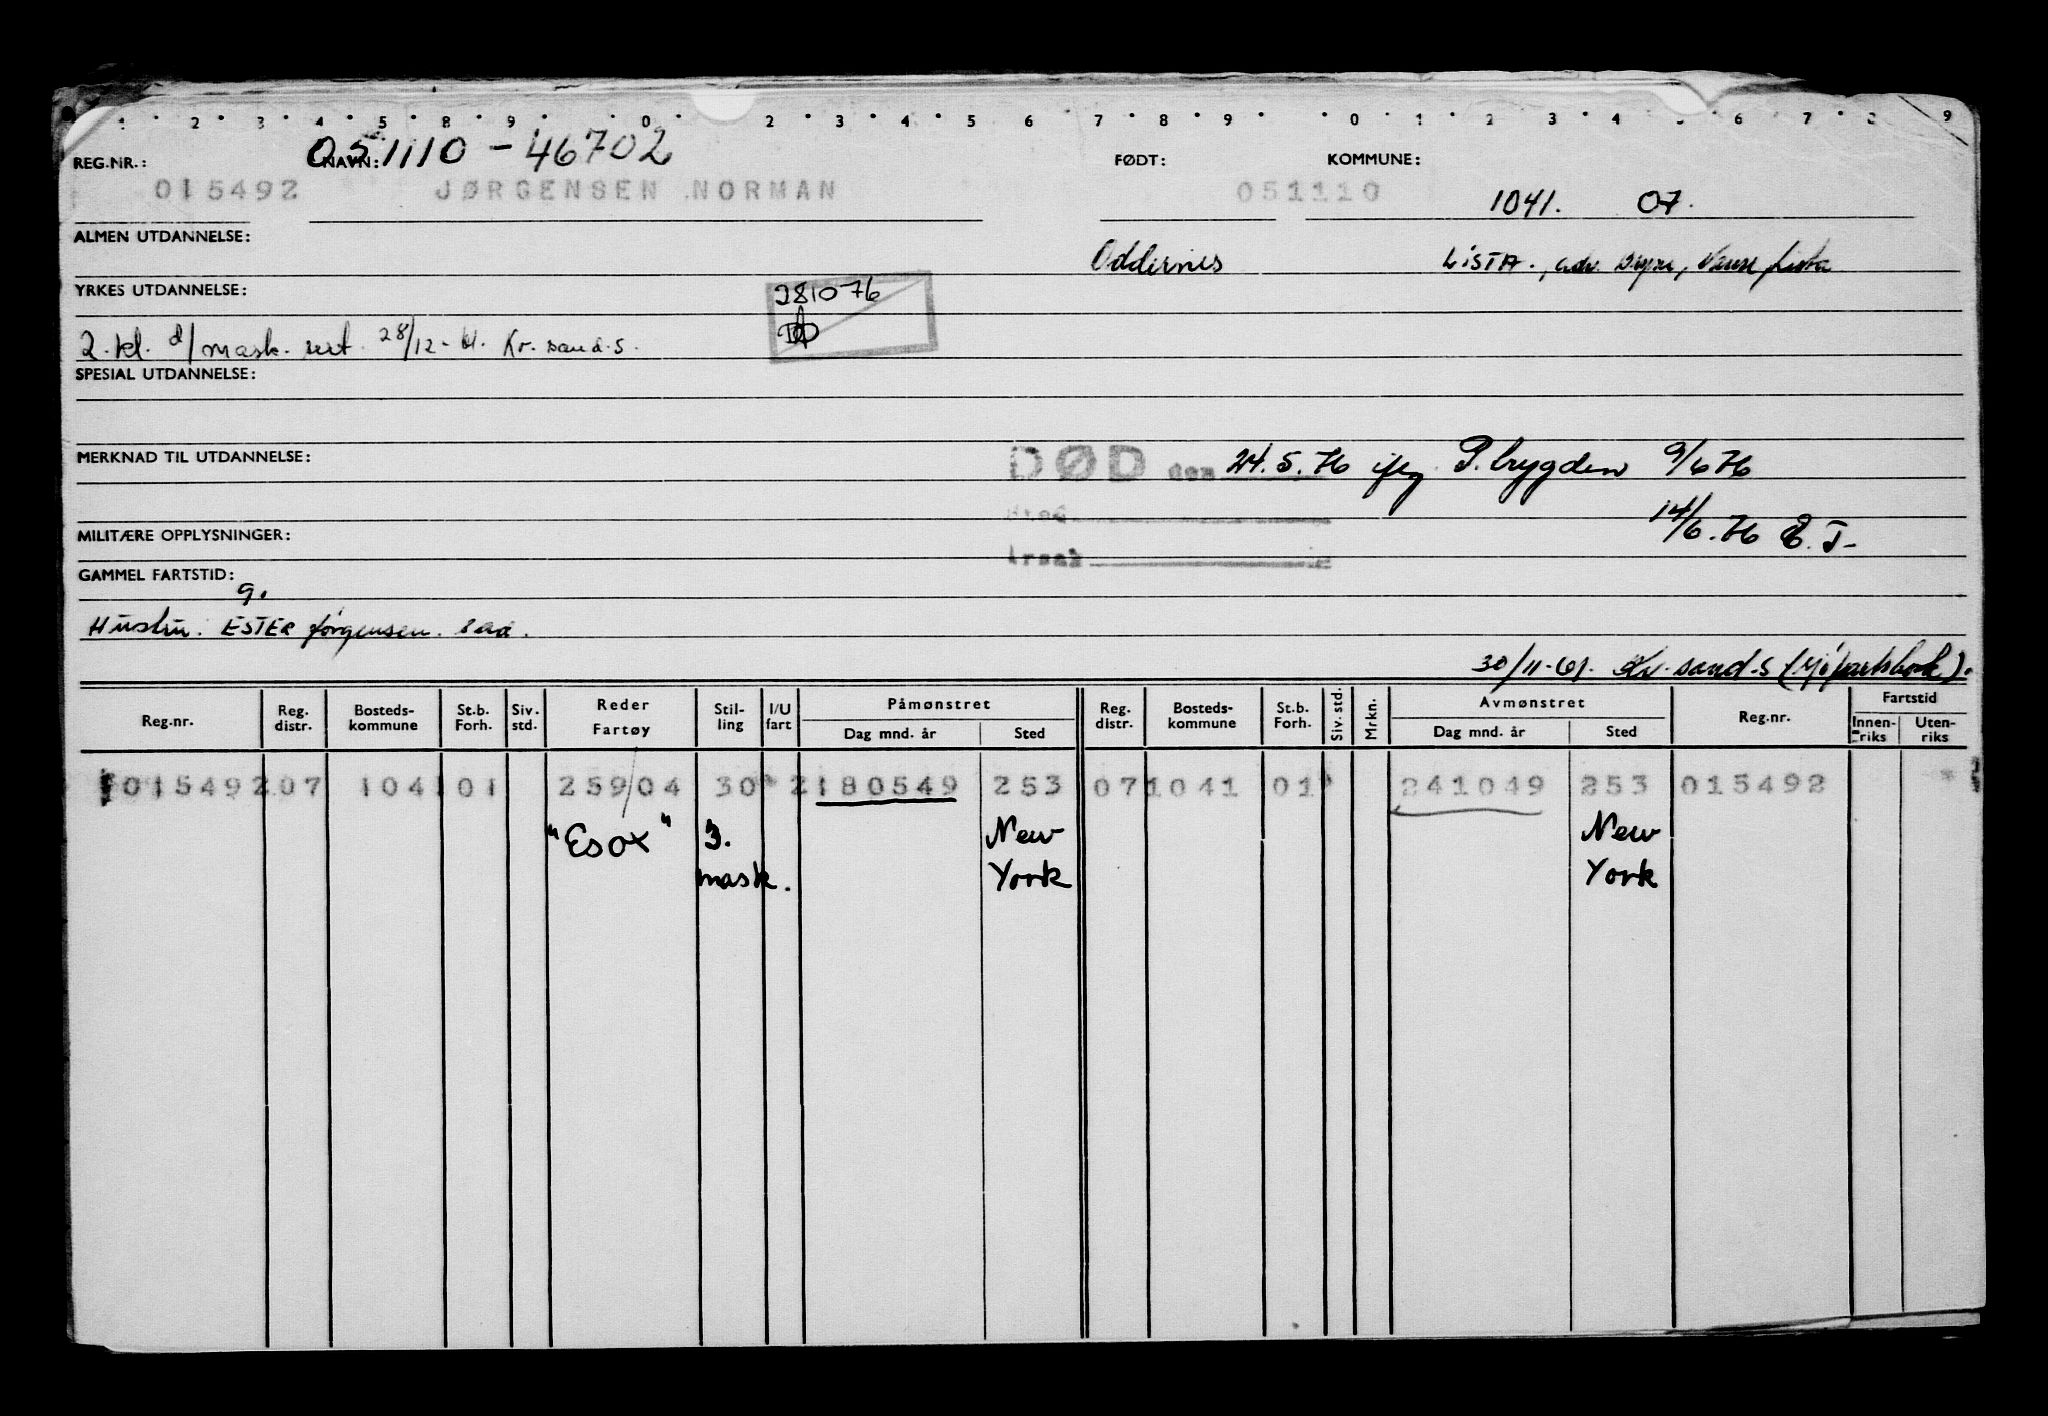 1 2 3 4 5 8 9 0 2 3 4 5 6 7 8 9 0 1 2 3 4 6 7 9
REG.NR.: NAVN: 051110 - 46702 FØDT: KOMMUNE:
015492 JØRGENSEN NORMAN 051110 1041. 07.
ALMEN UTDANNELSE:
Oddernes LISTA., adr. Vanse, Lista
YRKES UTDANNELSE: 281076
2. kl. d/mask. sert. 28/12- Kr. sand. S.
SPESIAL UTDANNELSE:
MERKNAD TIL UTDANNELSE: DØD den 24.5.76 iflg. P. trygden 9/6 76
Sted
14/6.76 E. T-
MILITÆRE OPPLYSNINGER:
Årsak
GAMMEL FARTSTID:
9.
Hustru. ESTER Jørgensen. s.ad.
30/11-61. Kr. sand. S
Reg.nr. Reg. distr. Bosteds-kommune St.b. Forh. Siv. std. Reder Fartøy Stil-ling I/U fart Påmønstret Dag mnd. år Sted Reg. distr. Bosteds-kommune St.b. Forh. Siv. std. Mrkn. Avmønstret Dag mnd. år Sted Reg.nr. Fartstid Innen-riks Uten-riks
015492 07 1041 01 259/04 30 2 180549 253 07 1041 01 241049 253 015492
"Esox" 3. New New
mask. York York